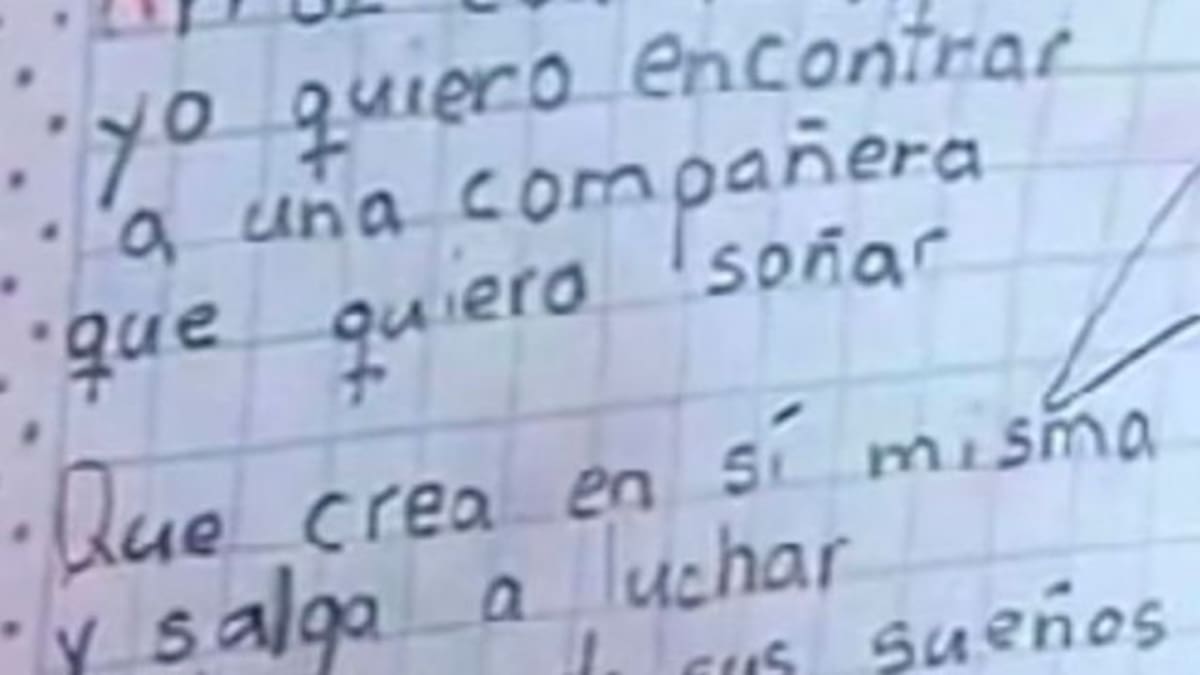 yo quiero encontrar
a una compañera
que quiera soñar
Que crea en sí misma
y salga a luchar
sus sueños